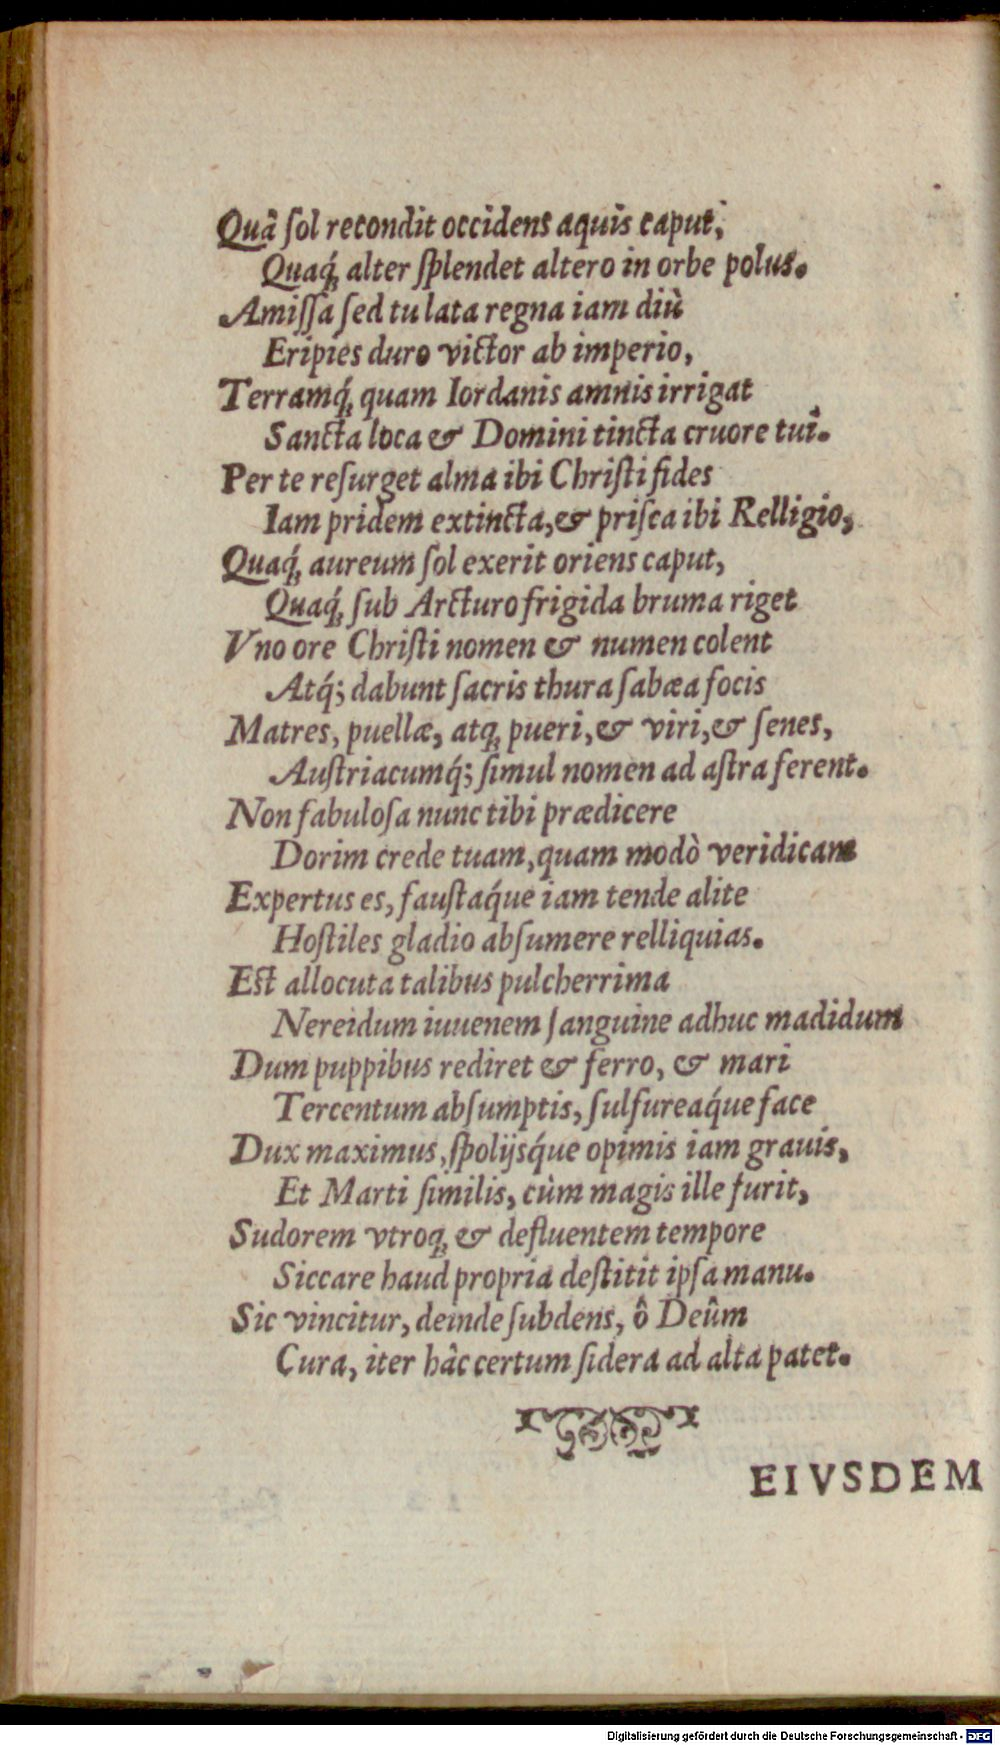 Quâ ſol recondit occidens aquis caput,
Quaq́; alter ſplendet altero in orbe polus.
Amiſſa ſed tu lata regna iam diù
Eripies duro victor ab imperio,
Terramq́; quam Iordanis amnis irrigat
Sancta loca & Domini tincta cruore tui.
Per te reſurget alma ibi Chriſti fides
Iam pridem extincta, & priſca ibi Relligio,
Quaq́; aureum ſol exerit oriens caput,
Quaq́; ſub Arcturo frigida bruma riget
Vno ore Chriſti nomen & numen colent
Atq́; dabunt ſacris thura ſabæa focis
Matres, puellæ, atq; pueri, & viri, & ſenes,
Auſtriacumq́; ſimul nomen ad aſtra ferent.
Non fabuloſa nunc tibi prædicere
Dorim crede tuam, quam modò veridicam
Expertus es, fauſtaq́ue iam tende alite
Hoſtiles gladio abſumere relliquias.
Eſt allocuta talibus pulcherrima
Nereidum iuuenem ſanguine adhuc madidum
Dum puppibus rediret & ferro, & mari
Tercentum abſumptis, ſulfureaq́ue face
Dux maximus, ſpolijsq́ue opimis iam grauis,
Et Marti ſimilis, cùm magis ille furit,
Sudorem vtroq; & defluentem tempore
Siccare haud propria deſtitit ipſa manu.
Sic vincitur, deinde ſubdens, ô Deûm
Cura, iter hâc certum ſidera ad alta patet.
EIVSDEM
Digitalisierung gefördert durch die Deutsche Forschungsgemeinschaft - DFG